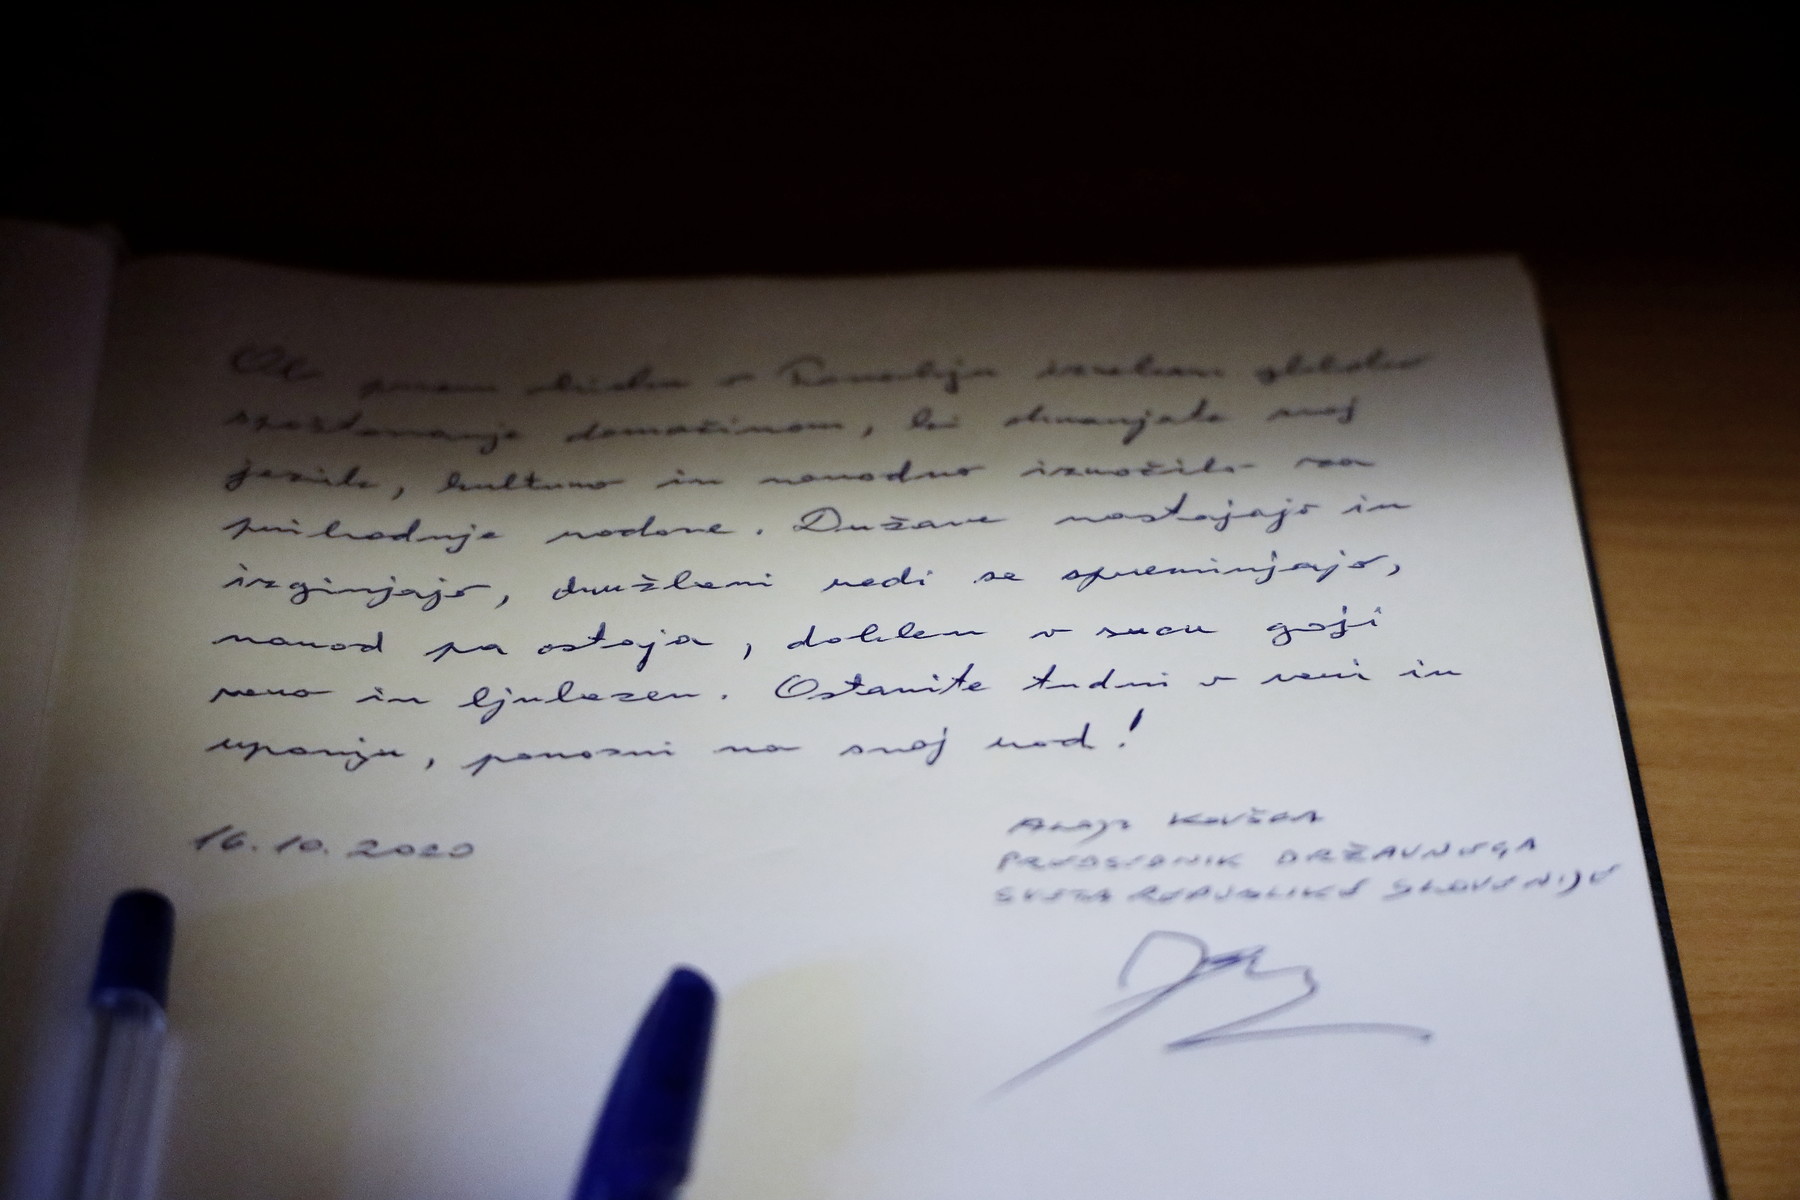 Ob prvem obisku v Porabju izrekam globoko
spoštovanje domačinom, ki ohranjate svoj
jezik, kulturo in narodno izročilo za
prihodnje rodove. Države nastajajo in
izginjajo, družbeni redi se spreminjajo,
narod pa ostaja, dokler v srcu goji
vero in ljubezen. Ostanite trdni v veri in
upanju, ponosni na svoj rod!
16.10.2020
Alojz Kovšca
PREDSEDNIK DRŽAVNEGA
SVETA REPUBLIKE SLOVENIJE